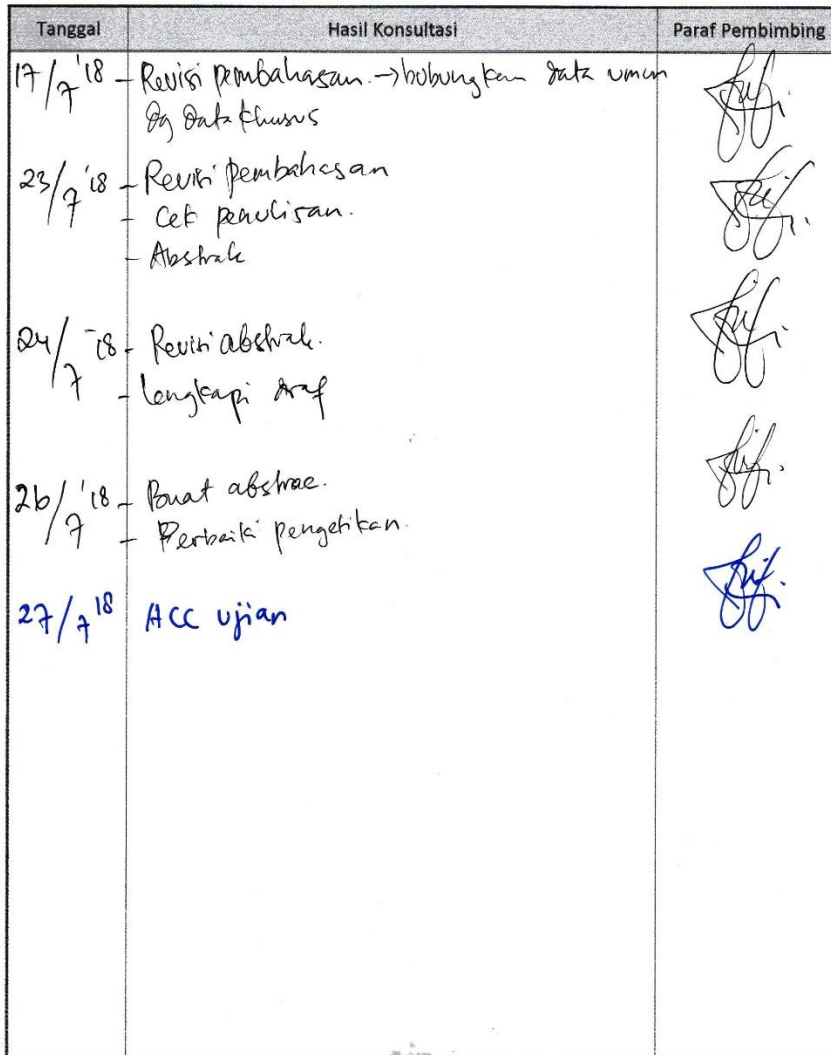 Tanggal Hasil Konsultasi Paraf Pembimbing
17/7 '18 - Revisi pembahasan. → hubungkan data umum
dg data khusus
23/7 '18 - Revisi pembahasan
- Cek penulisan.
- Abstrak
24/7 '18 - Revisi abstrak.
- lengkapi draf
26/7 '18 - Buat abstrac.
- Perbaiki pengetikan.
27/7 18 ACC ujian